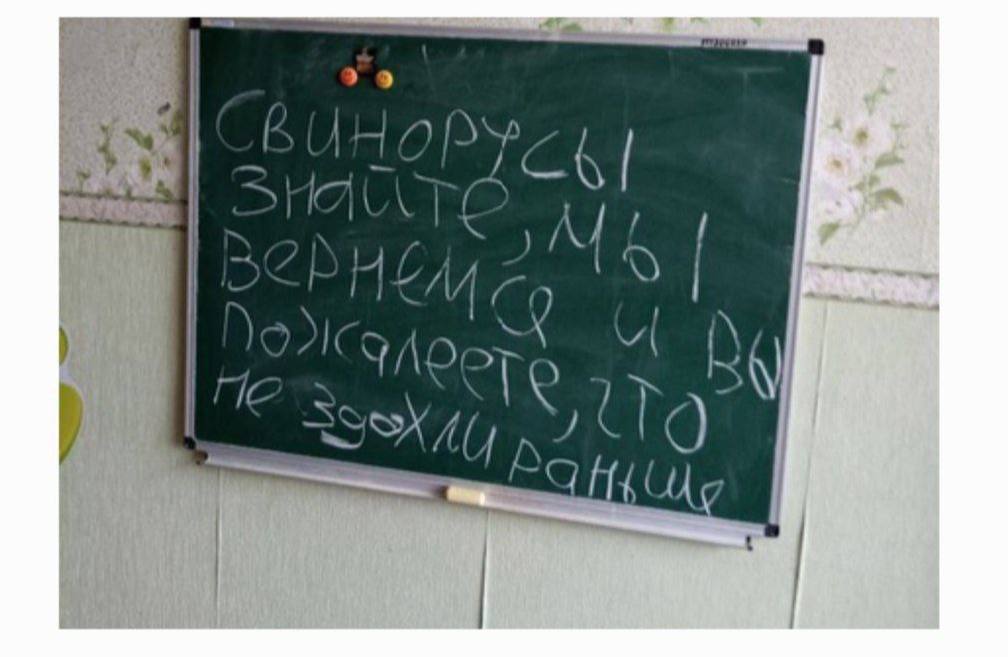 Свинорусы
знайте, мы
вернемся и вы
пожалеете, что
не здохли раньше